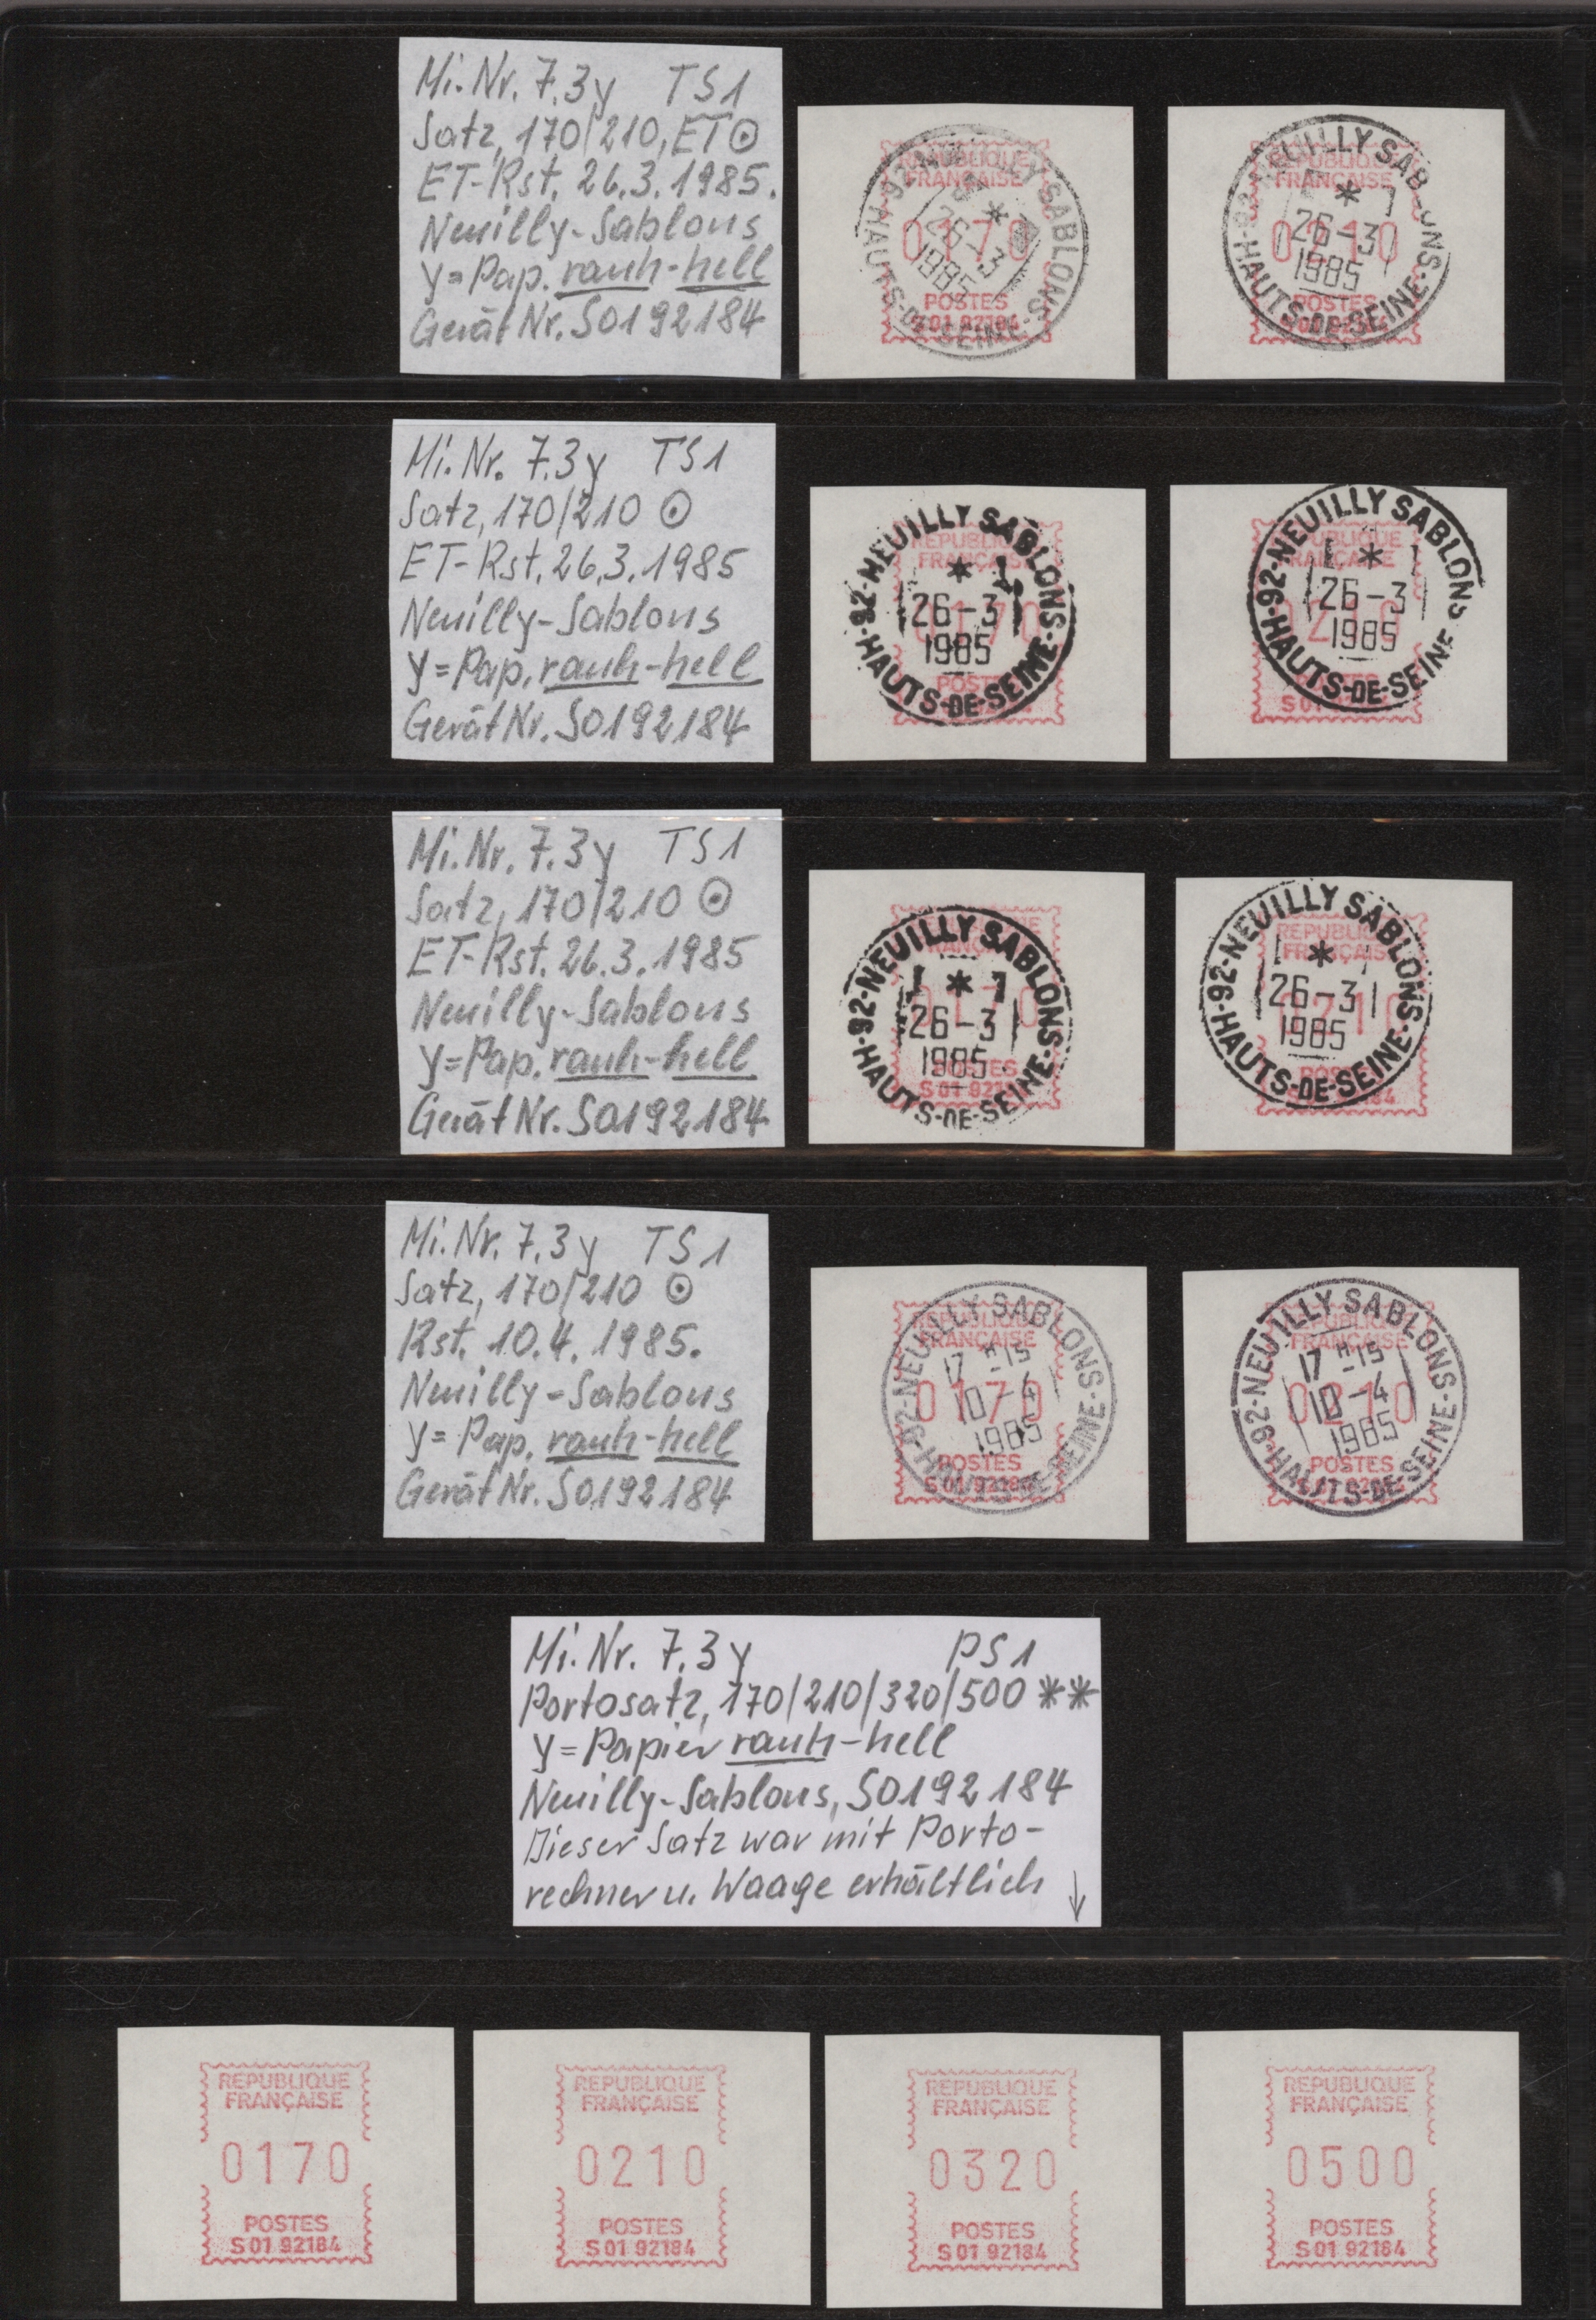 Mi. Nr. 7.3y TS1
Satz, 170/210, ET ⊙
ET-Rst. 26.3.1985.
Neuilly-Sablons
y = Pap. rauh-hell
Gerät Nr. S0192184
REPUBLIQUE
FRANÇAISE
0170
POSTES
S 01 92184
92-NEUILLY SABLONS
*
26-3
1985
HAUTS-DE-SEINE
REPUBLIQUE
FRANÇAISE
0210
POSTES
92-NEUILLY SABLONS
*
26-3
1985
HAUTS-DE-SEINE
Mi. Nr. 7.3y TS1
Satz, 170/210 ⊙
ET-Rst. 26.3.1985
Neuilly-Sablons
y = Pap. rauh-hell
Gerät Nr. S0192184
REPUBLIQUE
FRANÇAISE
0170
92-NEUILLY SABLONS
*
26-3
1985
HAUTS-DE-SEINE
92-NEUILLY SABLONS
*
26-3
1985
HAUTS-DE-SEINE
Mi. Nr. 7.3y TS1
Satz, 170/210 ⊙
ET-Rst. 26.3.1985
Neuilly-Sablons
y = Pap. rauh-hell
Gerät Nr. S0192184
92-NEUILLY SABLONS
*
26-3
1985
HAUTS-DE-SEINE
REPUBLIQUE
FRANÇAISE
0210
92-NEUILLY SABLONS
*
26-3
1985
HAUTS-DE-SEINE
Mi. Nr. 7.3y TS1
Satz, 170/210 ⊙
Rst. 10.4.1985.
Neuilly-Sablons
y = Pap. rauh-hell
Gerät Nr. S0192184
REPUBLIQUE
FRANÇAISE
0170
POSTES
S 01 92184
92-NEUILLY SABLONS
17 H-15
10-4
1985
HAUTS-DE-SEINE
REPUBLIQUE
FRANÇAISE
0210
POSTES
S 01 92184
92-NEUILLY SABLONS
17 H-15
10-4
1985
HAUTS-DE-SEINE
Mi. Nr. 7.3y PS1
Portosatz, 170/210/320/500 **
y = Papier rauh-hell
Neuilly-Sablons, S0192184
Dieser Satz war mit Porto-
rechner u. Waage erhältlich ↓
REPUBLIQUE
FRANÇAISE
0170
POSTES
S 01 92184
REPUBLIQUE
FRANÇAISE
0210
POSTES
S 01 92184
REPUBLIQUE
FRANÇAISE
0320
POSTES
S 01 92184
REPUBLIQUE
FRANÇAISE
0500
POSTES
S 01 92184